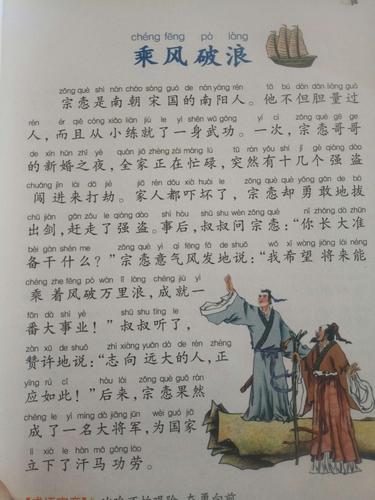 chéng fēng pò làng
乘风破浪
zōng què shì nán cháo sòng guó de nán yáng rén tā bú dàn dǎn liàng guò
宗悫是南朝宋国的南阳人。他不但胆量过
rén ér qiě cóng xiǎo liàn jiù le yì shēn wǔ gōng yí cì zōng què gē ge
人，而且从小练就了一身武功。一次，宗悫哥哥
de xīn hūn zhī yè quán jiā zhèng zài máng lù tū rán yǒu shí jǐ gè qiáng dào
的新婚之夜，全家正在忙碌，突然有十几个强盗
chuǎng jìn lái dǎ jié jiā rén dōu xià huài le zōng què què yǒng gǎn de bá
闯进来打劫。家人都吓坏了，宗悫却勇敢地拔
chū jiàn gǎn zǒu le qiáng dào shì hòu shū shu wèn zōng què nǐ zhǎng dà zhǔn
出剑，赶走了强盗。事后，叔叔问宗悫：“你长大准
bèi gàn shén me zōng què yì qì fēng fā de shuō wǒ xī wàng jiāng lái néng
备干什么？”宗悫意气风发地说：“我希望将来能
chéng zhe fēng pò wàn lǐ làng chéng jiù yì
乘着风破万里浪，成就一
fān dà shì yè shū shu tīng le
番大事业！”叔叔听了，
zàn xǔ de shuō zhì xiàng yuǎn dà de rén zhèng
赞许地说：“志向远大的人，正
yīng rú cǐ hòu lái zōng què guǒ rán
应如此！”后来，宗悫果然
chéng le yì míng dà jiāng jūn wèi guó jiā
成了一名大将军，为国家
lì xià le hàn mǎ gōng láo
立下了汗马功劳。